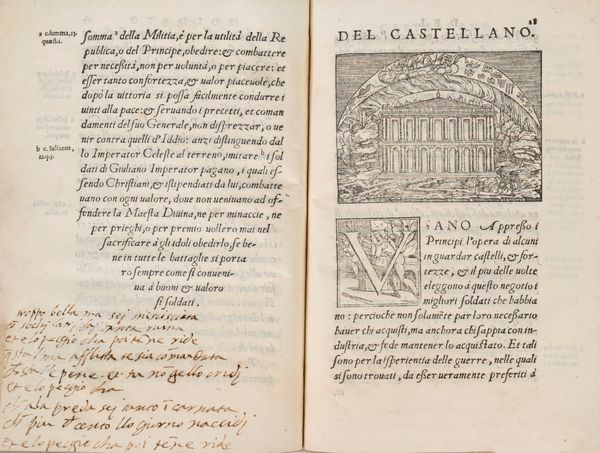 SOLDATO
a c. summa, 23.
quæsta.
somma ᵃ della Militia, è per la utilità della Re
publica, o del Principe, obedire: & combattere
per necessità, non per voluntà, o per piacere: et
esser tanto confortezza, & ualor piaceuole, che
dopò la uittoria si possa facilmente condurre i
uinti alla pace: & seruando i precetti, et coman
damenti del suo Generale, non disprezzar, o ue
nir contra quelli d'Iddio: anzi distinguendo dal
b c. Iulianus,
11. q. 3.
lo Imperator Celeste al terreno, imitare ᵇ i sol
dati di Giuliano Imperator pagano, i quali es-
sendo Christiani, & istipendiati da lui, combatte
uano con ogni valore, doue non ueniuano ad of-
fendere la Maesta Diuina, ne per minaccie, ne
per prieghi, o per premio uollero mai nel
sacrificare à gli idoli obedirlo, se be-
ne in tutte le battaglie si porta
ro sempre come si conueni-
ua à buoni & ualoro
si soldati.
troppo bella ma sei
et e lo peggio che poi te ne ride
et e lo peggio cha
preda sei
lo giorno
et e lo peggio cha poi te ne ride
18
DEL CASTELLANO.
VSANO Appresso i
Principi l'opera di alcuni
in guardar castelli, & for-
tezze, & il piu delle uolte
eleggono à questo negotio i
migliori soldati che habbia
no: percioche non solamẽte par loro necessario
hauer chi acquisti, ma anchora chi sappia con in-
dustria, & fede mantener lo acquistato. Et tali
sono per la isperientia delle guerre, nelle quali
si sono trouati, da esser ueramente preferiti à